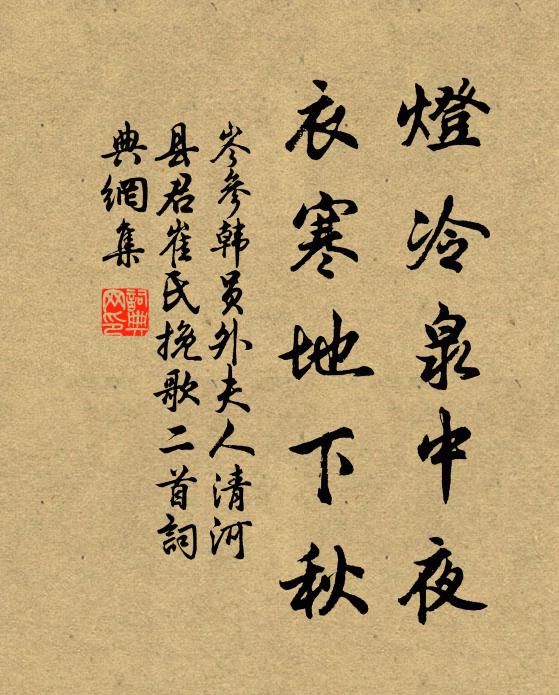 燈冷泉中夜
衣寒地下秋
岑參韩员外夫人清河
县君崔氏挽歌二首詞
典網集
詞典
网印